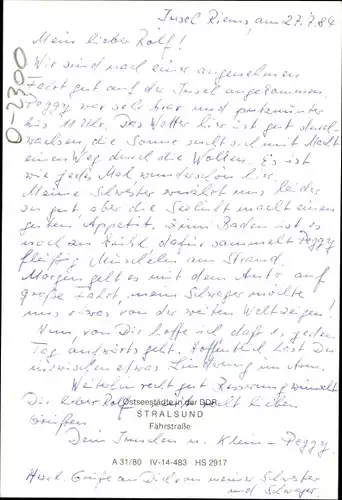 Insel Riems, am 27.7.84
Mein lieber Rolf!
Wir sind nach einer angenehmen
Fahrt gut auf der Insel angekommen.
Peggy war sehr brav und putzmunter
bis 11 Uhr. Das Wetter hier ist gut durch-
wachsen, die Sonne sucht sich mit Macht
einen Weg durch die Wolken. Es ist
wie jedes Mal wunderschön hier.
Meine Schwester ernährt uns leider
zu gut, aber die Seeluft macht einen
guten Appetit. Zum Baden ist es
noch zu kühl, dafür sammelt Peggy
fleißig Muscheln am Strand.
Morgen geht es mit dem Auto auf
große Fahrt, mein Schwager möchte
uns etwas von der weiten Welt zeigen!
Nun, von Dir hoffe ich, daß es jeden
Tag aufwärts geht. Hoffentlich hast Du
inzwischen etwas Linderung im Arm.
Weiterhin recht gut Besserung wünscht
Dir lieber Rolf mit lieben
Grüßen
Dein u. Klein-Peggy.
Herzl. Grüße an Dich von meiner Schwester
und Schwager.
0-2300
Ostseestädte in der DDR
STRALSUND
Fährstraße
A 31/80 IV-14-483 HS 2917